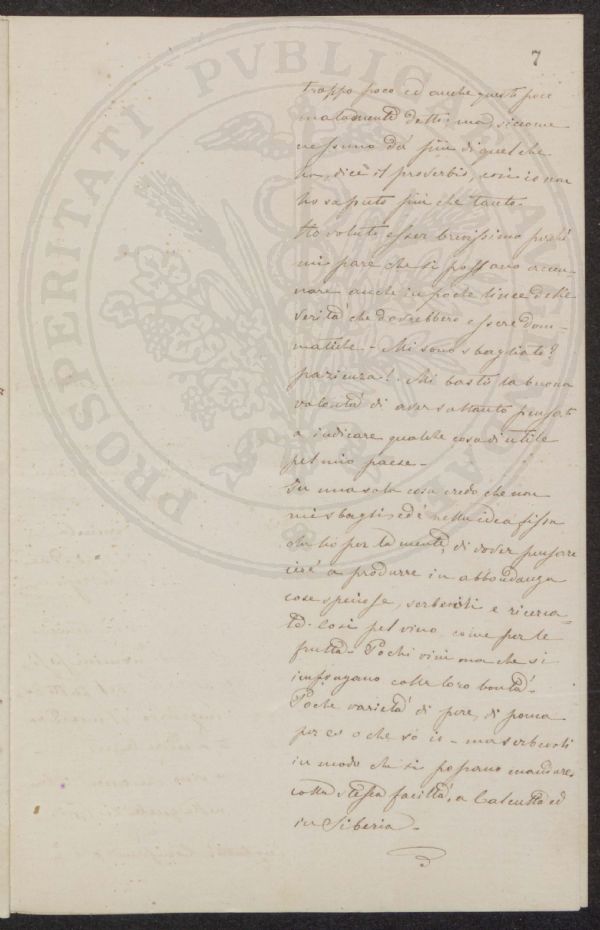 7
PROSPERITATI PVBLICAE AVGENDAE
troppo poco ed anche questo poco
malamente detto; ma, siccome
nessuno dà più di quel che
ha, dice il proverbio, così io non
ho saputo più che tanto.
Ho voluto esser brevissimo perchè
mi pare che si possano accen-
nare anche in poche linee delle
verità che dovrebbero essere dom-
matiche - Mi sono sbagliato?
pazienza! Mi basti la buona
volontà di aver soltanto pensato
a indicare qualche cosa di utile
pel mio paese -
In una sola cosa credo che non
mi sbagli, ed è nella idea fissa
che ho per la mente, di dover pensare
cioè a produrre in abbondanza
cose speciose, serbevoli e ricerca-
te. Così pel vino come per le
frutta - Pochi vini ma che si
impongano colla loro bontà -
Poche varietà di pere, di poma
per es o che so io - ma serbevoli
in modo che si possano mandare,
colla stessa facilità, a Calcutta ed
in Siberia -